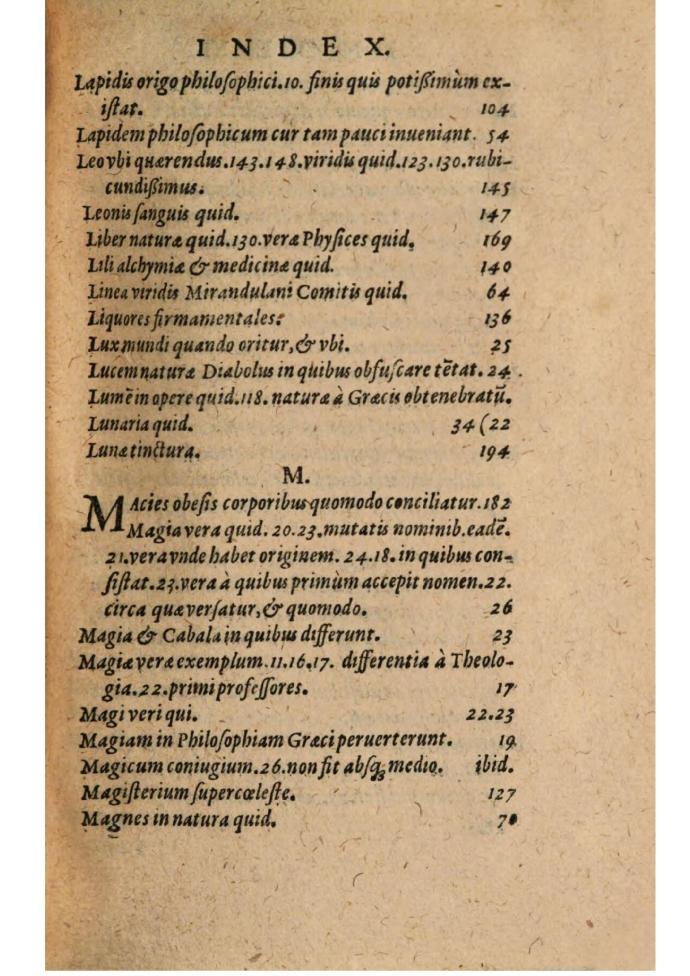 INDEX.
Lapidis origo philoſophici.10. finis quis potißimùm ex-
iſtat. 104
Lapidem philoſophicum cur tam pauci inueniant. 54
Leo vbi quærendus.143.148.viridis quid.123.130.rubi-
cundißimus. 145
Leonis ſanguis quid. 147
Liber naturæ quid.130.veræ Phyſices quid. 169
Lili alchymiæ & medicinæ quid. 140
Linea viridis Mirandulani Comitis quid. 64
Liquores firmamentales: 136
Lux mundi quando oritur,& vbi. 25
Lucem naturæ Diabolus in quibus obfuſcare tẽtat. 24.
Lumẽ in opere quid.118. naturæ à Græcis obtenebratũ.
Lunaria quid. 34 (22
Lunæ tinctura. 194
M.
MAcies obeſis corporibus quomodo conciliatur.182
Magia vera quid. 20.23.mutatis nominib.eadẽ.
21.vera vnde habet originem. 24.18. in quibus con-
ſiſtat.23.vera à quibus primùm accepit nomen.22.
circa quæ verſatur,& quomodo. 26
Magia & Cabala in quibus differunt. 23
Magiæ veræ exemplum.11.16.17. differentia à Theolo-
gia.22.primi profeſſores. 17
Magi veri qui. 22.23
Magiam in Philoſophiam Græci peruerterunt. 19
Magicum coniugium.26.non fit abſq; medio. ibid.
Magiſterium ſupercœleſte. 127
Magnes in natura quid. 70